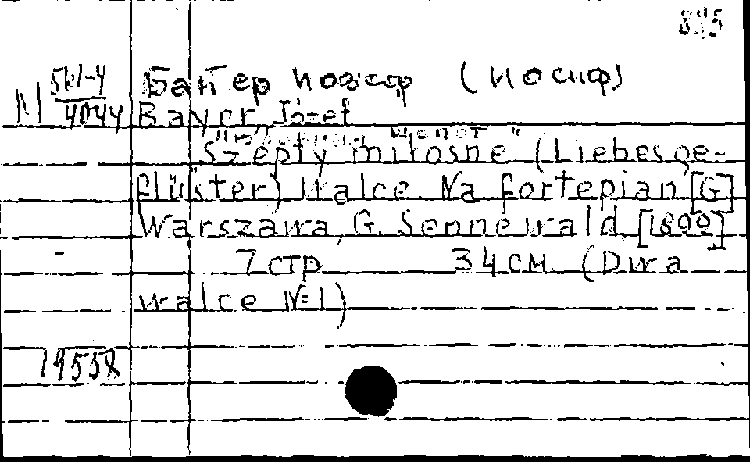 835
М 561-4
4044
Байер Йозеф (Иосиф)
Bayer, Józef
"Szepty miłosne" (Liebesge-
flüster) Walce. Na fortepian [G]
Warszawa, G. Sennewald [1800]
7 стр 34 см. (Dwa
walce N=1)
19558